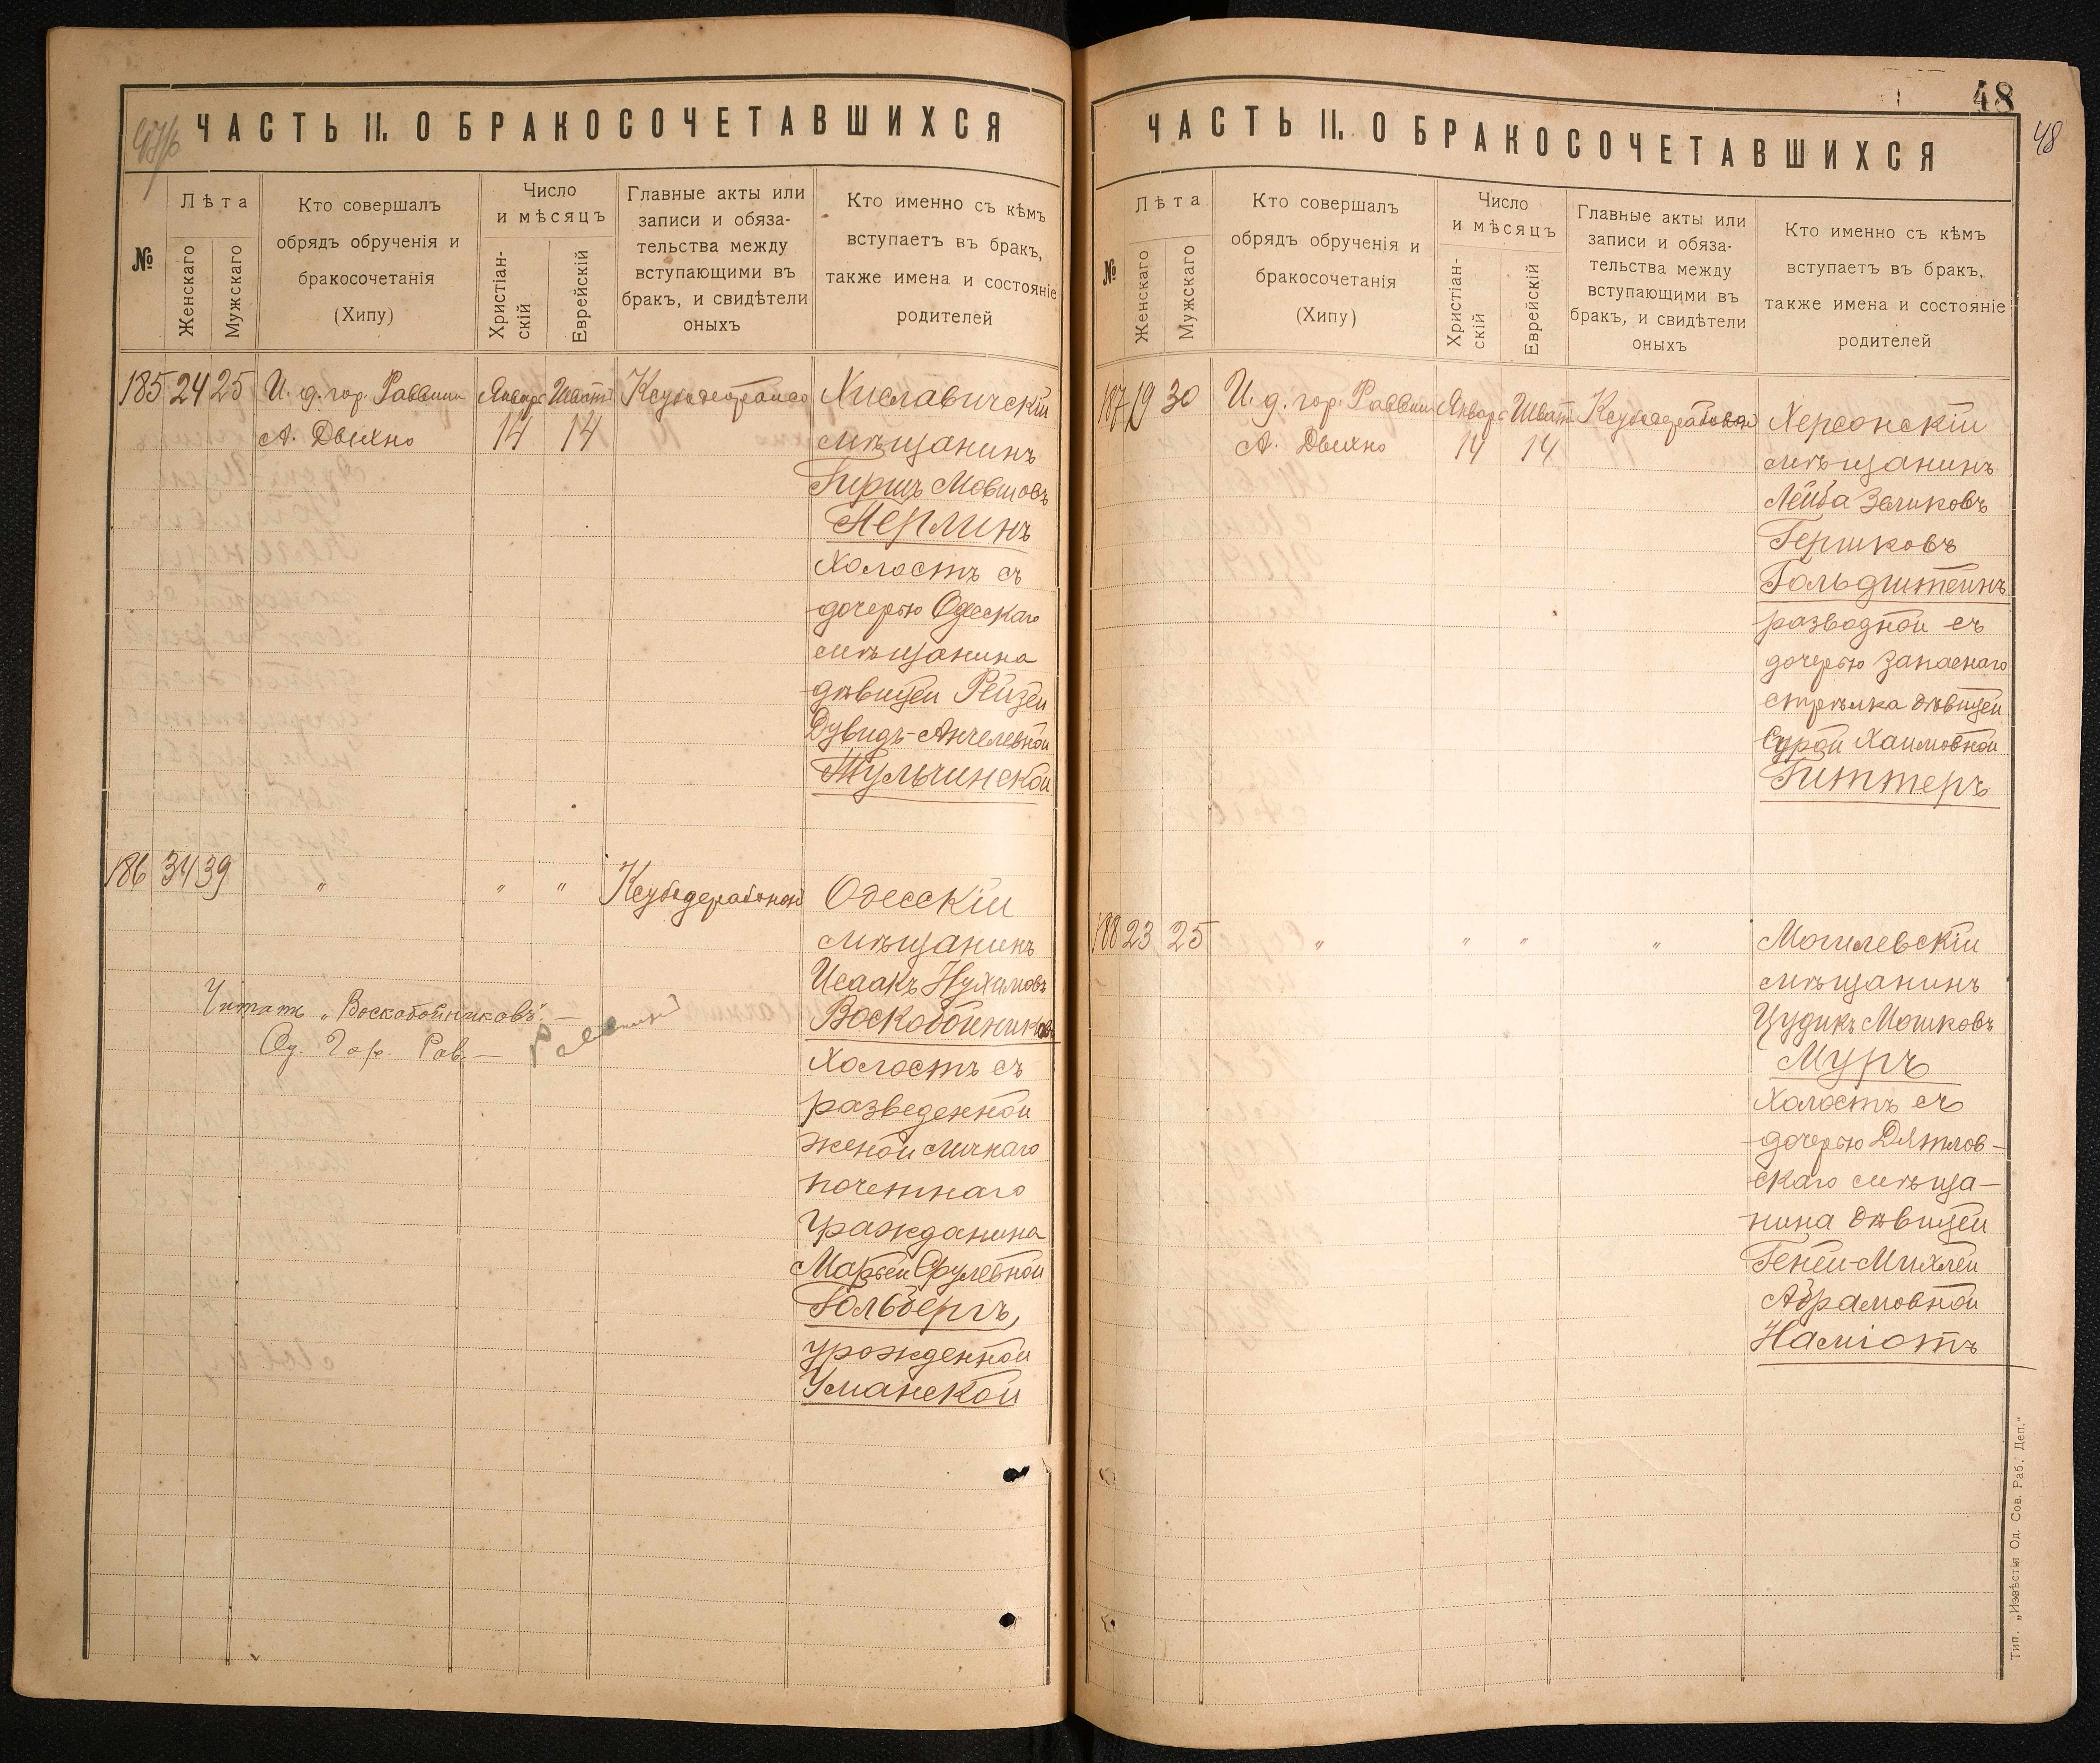 ЧАСТЬ II. О БРАКОСОЧЕТАВШИХСЯ
№
Лѣта
Женскаго
Мужскаго
Кто совершалъ
обрядъ обрученія и
бракосочетанія
(Хипу)
Число
и мѣсяцъ
Христіан-
скій
Еврейскій
Главные акты или
записи и обяза-
тельства между
вступающими въ
бракъ, и свидѣтели
оныхъ
Кто именно съ кѣмъ
вступаетъ въ бракъ,
также имена и состояніе
родителей
185 24 25 И. д. гор. Раввина Январь Шватъ
А. Двихно 14 14
Хиславичскій
мѣщанинъ
Гиршъ Мовшовъ
Перлинъ
холостъ съ
дочерью Одесскаго
мѣщанина
дѣвицей Рейзей
Дувидъ-Анчелевной
Тульчинской
186 34 39 „ „ „ Ксубедерабонон
Одесскій
мѣщанинъ
Исаакъ Нухимовъ
Воскобойниковъ
холостъ съ
разведенной
женой личнаго
почетнаго
гражданина
Марьей Срулевной
Гольбергъ,
урожденной
Уманской
Читать „Воскобойниковъ". —
Од. Гор. Рав. — Раввинъ
48
48
ЧАСТЬ II. О БРАКОСОЧЕТАВШИХСЯ
№
Лѣта
Женскаго
Мужскаго
Кто совершалъ
обрядъ обрученія и
бракосочетанія
(Хипу)
Число
и мѣсяцъ
Христіан-
скій
Еврейскій
Главные акты или
записи и обяза-
тельства между
вступающими въ
бракъ, и свидѣтели
оныхъ
Кто именно съ кѣмъ
вступаетъ въ бракъ,
также имена и состояніе
родителей
187 19 30 И. д. гор. Раввина Январь Шватъ
А. Двихно 14 14
Херсонскій
мѣщанинъ
Лейба Зеликовъ
Гершковъ
Гольдштейнъ
разводной съ
дочерью запаснаго
стрѣлка дѣвицей
Сурой Хаимовной
Гиттеръ
188 23 25 „ „ „ „
Могилевскій
мѣщанинъ
Цудикъ Мошковъ
Муръ
холостъ съ
дочерью Дятлов-
скаго мѣща-
нина дѣвицей
Геней-Михлей
Абрамовной
Наміотъ
Тип. „Извѣстія Од. Сов. Раб. Деп."